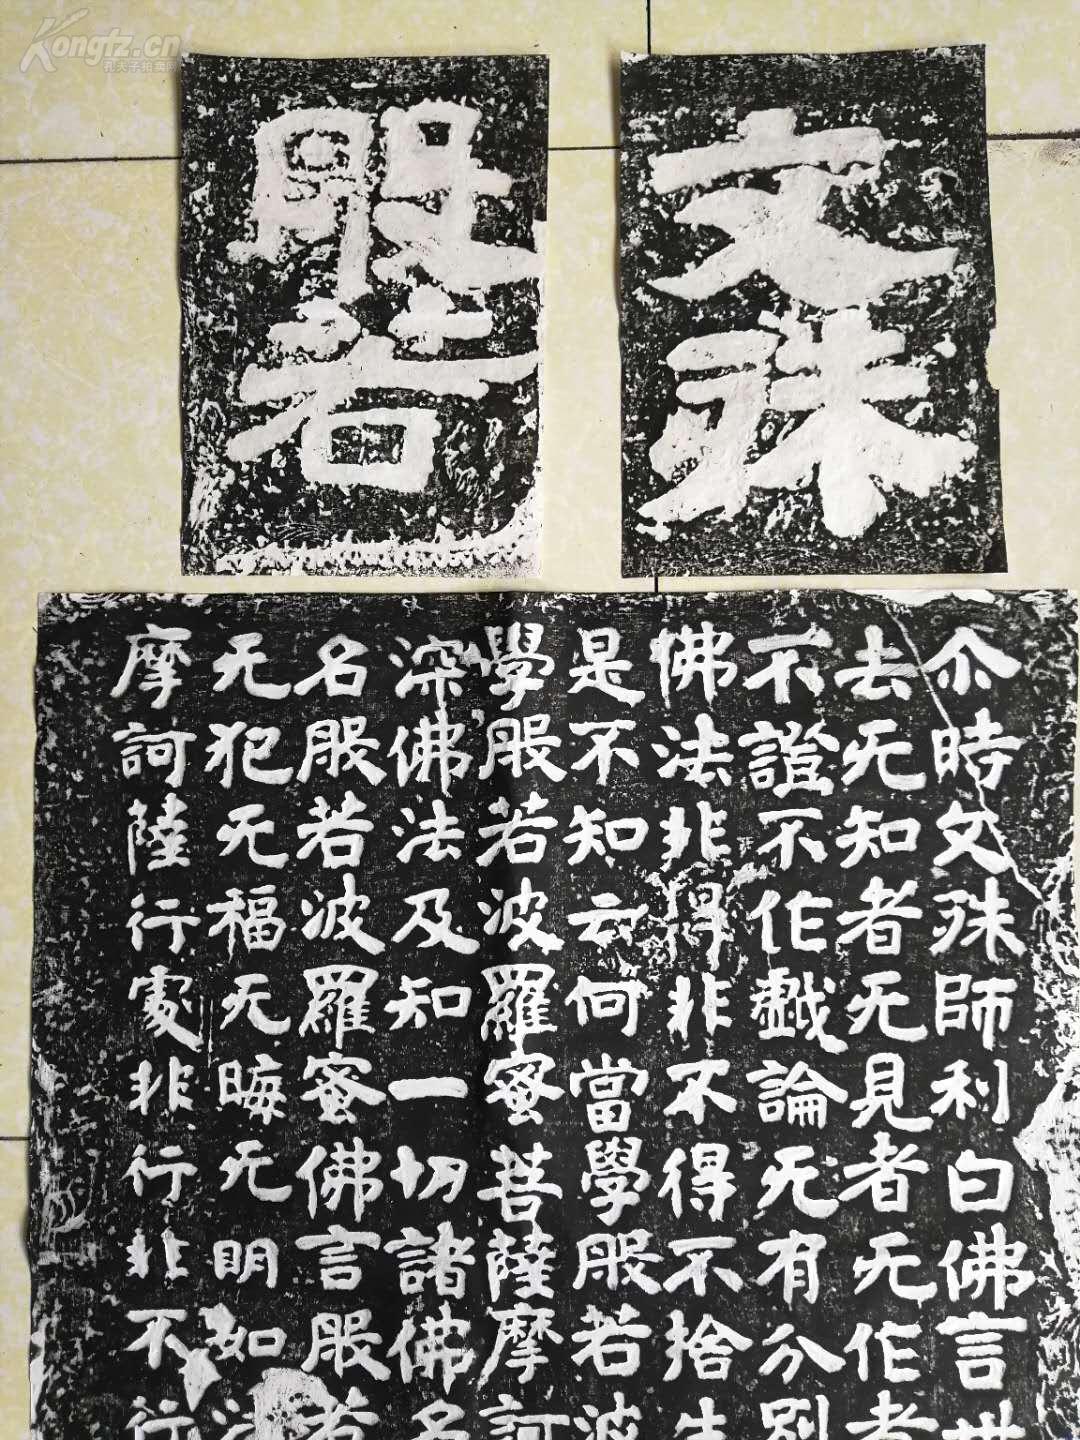 Kongfz.cn
孔夫子拍卖网
文殊
般若
尒時文殊師利白佛言世
去无知者无見者无作者
不證不作戲論无有分別
佛法非得非不得不捨生
是不知云何當學般若波
學般若波羅蜜菩薩摩訶
深佛法及知一切諸佛名
名般若波羅蜜佛言般若
无犯无福无晦无明如法
摩訶薩行處非行非不行